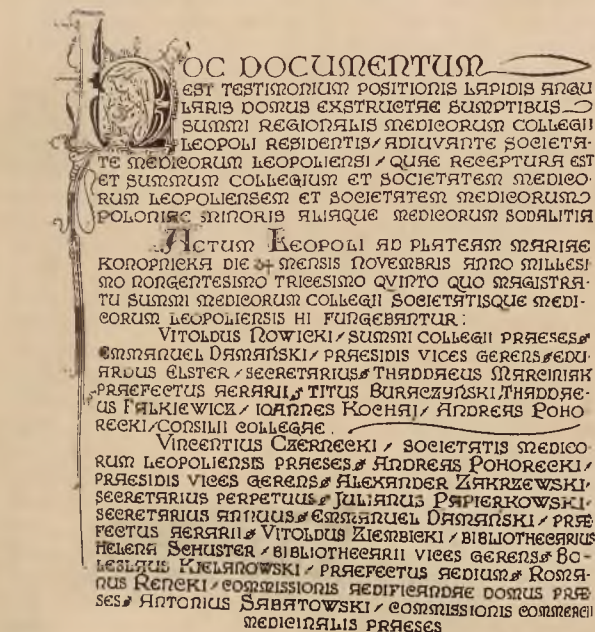 HOC DOCUMENTUM
EST TESTIMONIUM POSITIONIS LAPIDIS ANGU
LARIS DOMUS EXSTRUCTAE SUMPTIBUS
SUMMI REGIONALIS MEDICORUM COLLEGII
LEOPOLI RESIDENTIS/ADIUVANTE SOCIETA-
TE MEDICORUM LEOPOLIENSI/QUAE RECEPTURA EST
ET SUMMUM COLLEGIUM ET SOCIETATEM MEDICO-
RUM LEOPOLIENSEM ET SOCIETATEM MEDICORUM
POLONIAE MINORIS ALIAQUE MEDICORUM SODALITIA
ACTUM LEOPOLI AD PLATEAM MARIAE
KONOPNICKA DIE MENSIS NOVEMBRIS ANNO MILLESI
MO NONGENTESIMO TRICESIMO QVINTO QUO MAGISTRA-
TU SUMMI MEDICORUM COLLEGII SOCIETATISQUE MEDI-
CORUM LEOPOLIENSIS HI FUNGEBANTUR:
VITOLDUS NOWICKI/SUMMI COLLEGII PRAESES
EMMANUEL DAMAŃSKI/PRAESIDIS VICES GERENS EDU-
ARDUS ELSTER/SECRETARIUS THADDAEUS MARCINIAK
PRAEFECTUS AERARII TITUS BURACZYŃSKI THADDAE-
US FALKIEWICZ/IOANNES KOCHAJ/ANDREAS POHO
RECKI/CONSILII COLLEGAE.
VINCENTIUS CZERNECKI/SOCIETATIS MEDICO-
RUM LEOPOLIENSIS PRAESES ANDREAS POHORECKI/
PRAESIDIS VICES GERENS ALEXANDER ZAKRZEWSKI/
SECRETARIUS PERPETUUS JULIANUS PAPIERKOWSKI/
SECRETARIUS ANNUUS EMMANUEL DAMAŃSKI/PRAE
FECTUS AERARII VITOLDUS ZIEMBICKI/BIBLIOTHECARIUS
HELENA SCHUSTER/BIBLIOTHECARII VICES GERENS BO-
LESLAUS KIELANOWSKI/PRAEFECTUS AEDIUM ROMA-
NUS RENCKI/COMMISSIONIS AEDIFICANDAE DOMUS PRAE
SES ANTONIUS SABATOWSKI/COMMISSIONIS COMMERCII
MEDICINALIS PRAESES